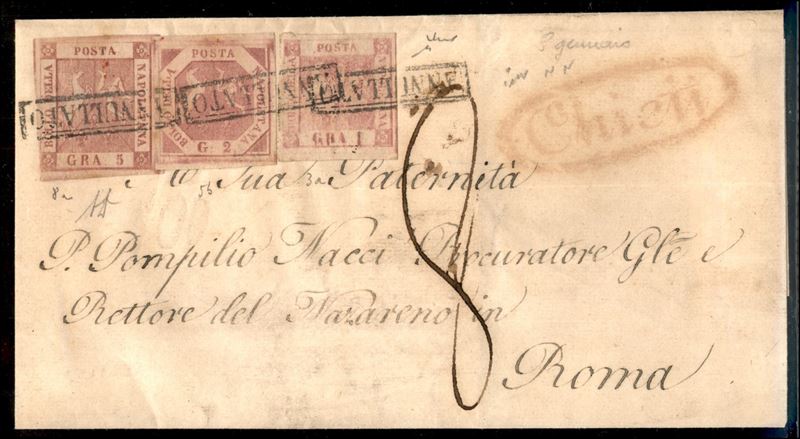 POSTA NAPOLETANA BOLLO DELLA GRA 5
POSTA NAPOLETANA BOLLO DELLA G. 2
POSTA GRA 1
ANNULLATO
ANNULLATO
ANNULLATO
3 gennaio
Chieti
8a
5b
3a
A Sua Paternità
P. Pompilio Nacci Procuratore Gle e
Rettore del Nazareno in
Roma
8